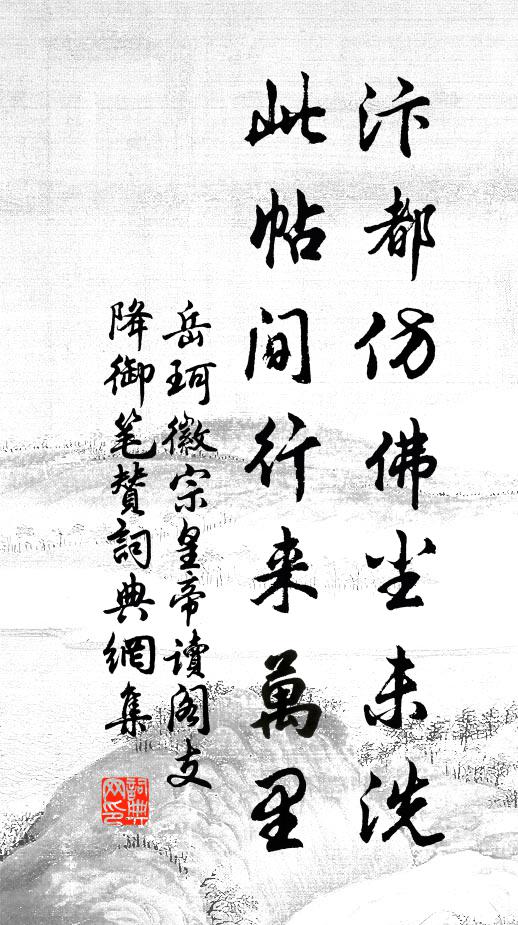 汴都仿佛尘未洗
此帖间行来萬里
岳珂徽宗皇帝讀阁支
降御笔赞詞典網集
詞典
网印